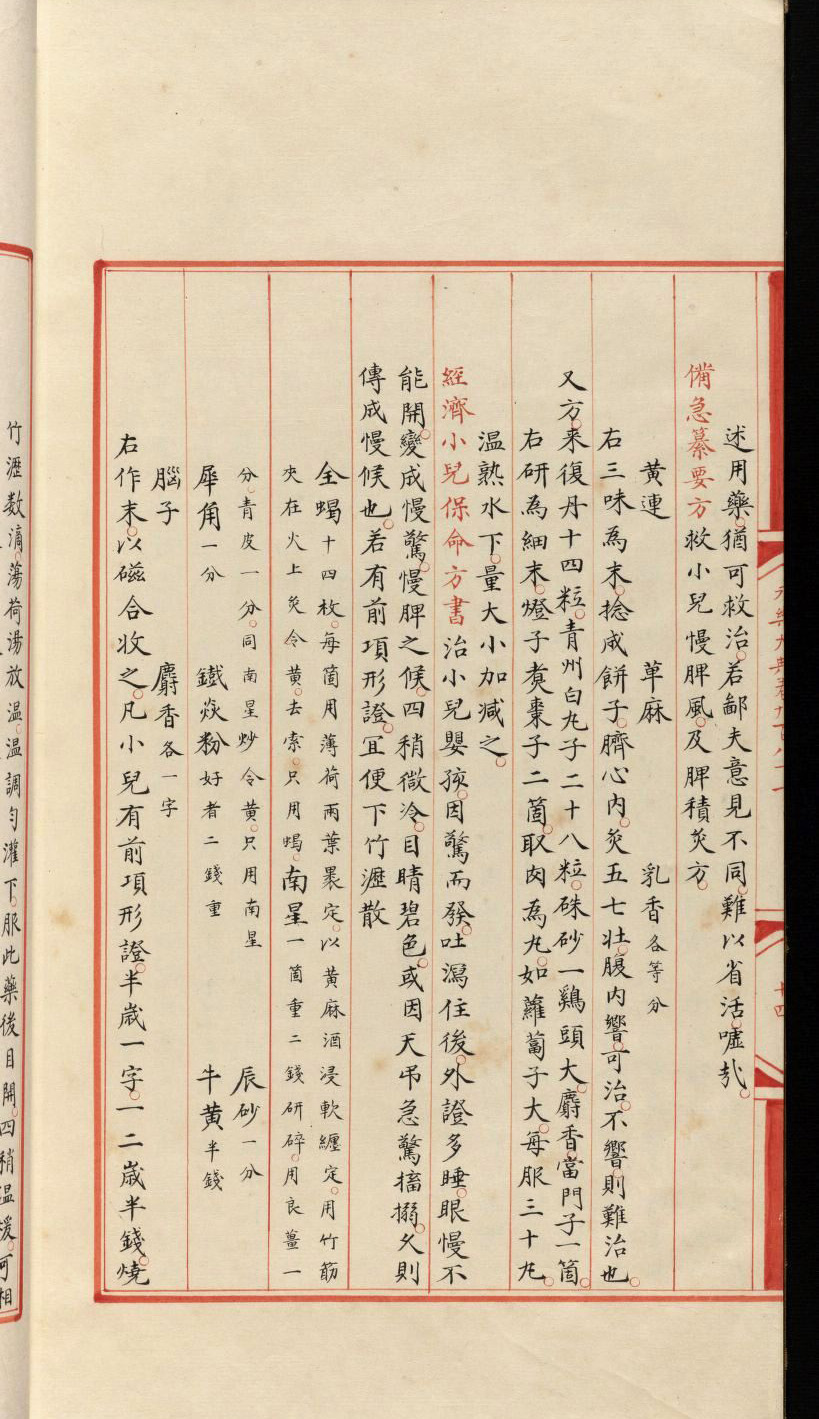 述用藥。猶可救治。若鄙夫意見不同。難以省活。噓㢤。
備急纂要方救小兒慢脾風。及脾積灸方。
黃連 草麻 乳香各等分
右三味為末。捻成餅子。臍心內。灸五七壯。腹內響。可治。不響。則難治也。
又方。来復丹十四粒。青州白丸子二十八粒。硃砂一鷄頭大。麝香當門子一箇。
右研為細末。燈子煑棗子二箇。取肉為丸。如蘿蔔子大。每服三十丸。
温熟水下。量大小加減之。
經濟小兒保命方書治小兒嬰孩。因驚而發。吐瀉住後。外證多睡。眼慢不
能開。變成慢驚。慢脾之候。四稍微冷。目睛碧色。或因天弔急驚搐搦。久則
傳成慢候也。若有前項形證。冝便下竹瀝散
全蝎十四枚。每箇用薄荷兩葉裹定。以黃麻酒浸軟纏定。用竹筯
夾在火上炙令黃。去索。只用蝎。南星一箇重二錢研碎。用良薑一
分。青皮一分。同南星炒令黃。只用南星 辰砂一分
犀角一分 鐵焱粉好者二錢重 牛黃半錢
腦子 麝香各一字
右作末。以磁合收之。凡小兒有前項形證。半歲一字。一二歲半錢。燒
竹瀝数滴。蕩荷湯放温。温調勻灌下。服此藥後目開。四稍温煖。可相